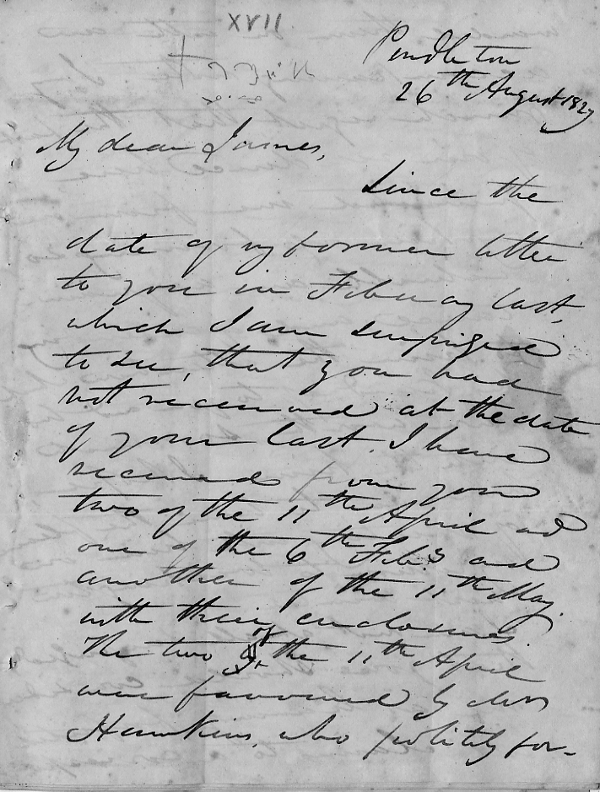 XVII
Pendleton
26th August 1827
My dear James,
Since the
date of my former letter
to you in February last,
which I am surprized
to see, that you had
not received at the date
of your last. I have
received from you
two of the 11th April and
one of the 6th Feby and
another of the 11th May.
with their enclosures.
The two of the 11th April
were favoured by Mrs
Hawkins, who politely for-